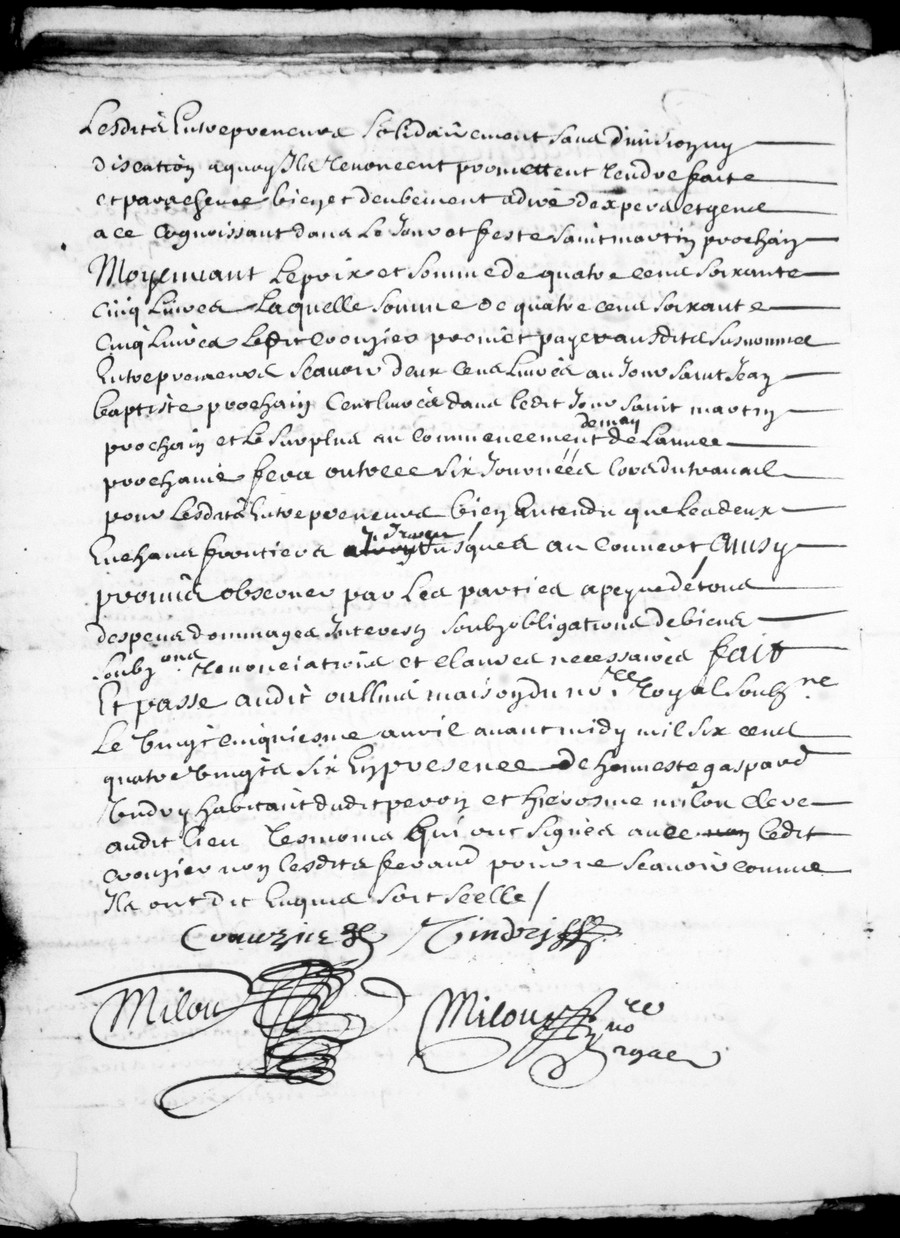 Lesdits Entrepreneurs solidairement sans division ny
discution a quoy Ils renoncent promettent rendre faite
et parachevee bien et deubement a dire dexpers et gens
a ce cognoissant dans Le Jour et feste saint martin prochain
Moyennant Le prix et somme de quatre cens soixante
cinq Livres Laquelle somme de quatre cens soixante
cinq Livres Ledit crouzier promet payer ausdits susnommes
Entrepreneurs scavoir deux cens Livres au Jour saint Jean
baptiste prochain Cent livres dans ledit Jour saint martin
prochain et Le surplus au commencement de may de Lannee
prochaine fera outre ce six Journées lors du travail
pour Lesdits Entrepreneurs bien Entendu que Les deux
Enchans frontiers Jusques au couvert Ainsy
promis observer par Les parties a peyne de tous
despens dommages Interestz soubz obligations de biens
soubz ons renonciations et clauses necessaires fait
Et passe audit oullins maison du nore Royal soubz ne
Le vingt cinquiesme avril avant midy mil six cens
quatre vingts six En presence de honneste gaspard
habitant dudit peron et hierosme milou clerc
audit lieu tesmoins qui ont signes avec ledit
crouzier non lesdits ferand pour ne scavoir comme
Ils ont dit Enquis soit scelle /
Crouzier
Milou Milou
nore
royal